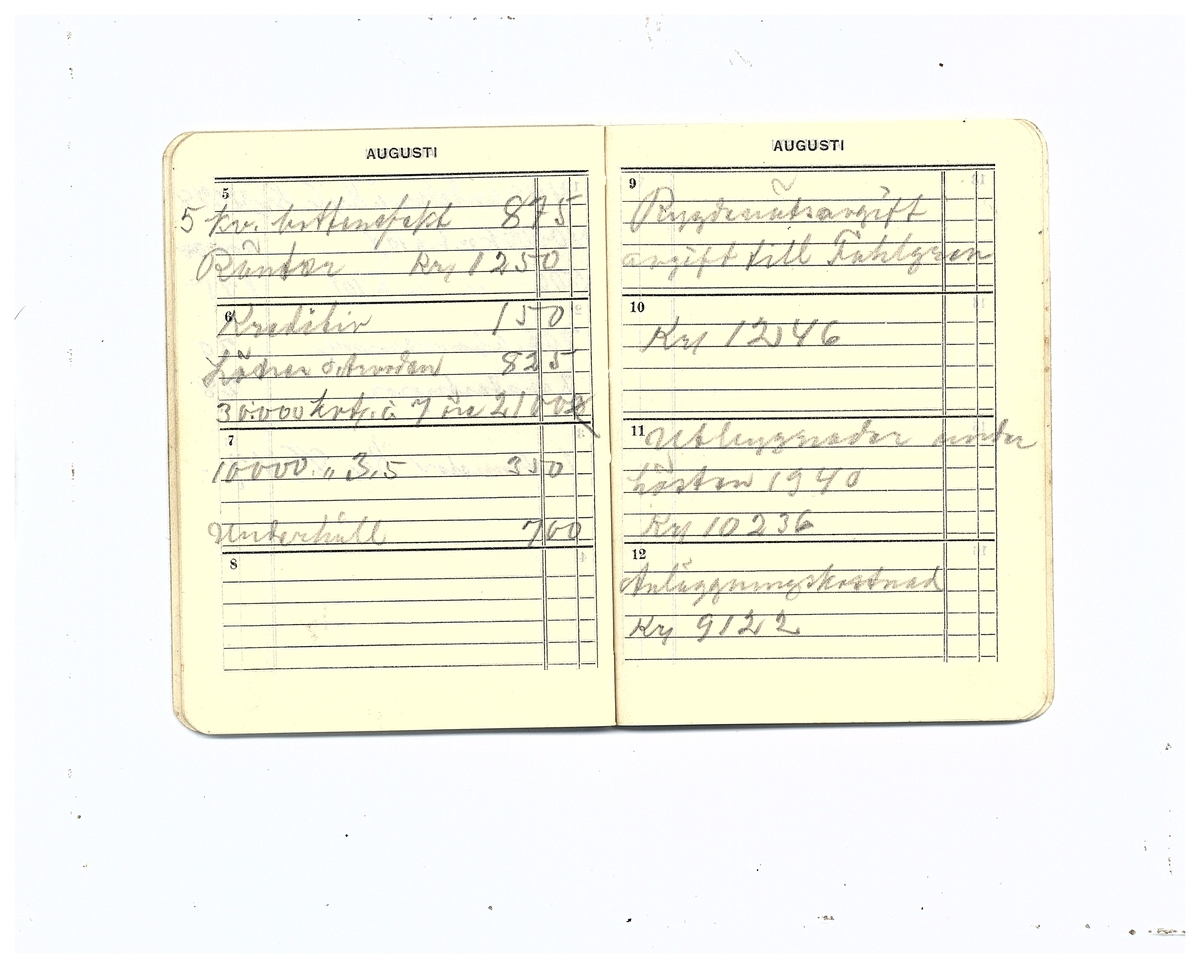 AUGUSTI
5
5 kv. bottenefekt 875
Räntor Kr 1250
6
Kreditiv 150
Löner o Arvoden 825
30000 kvt. à 7 öre 2100
7
10000 " 3,5 350
Underhåll 700
8
AUGUSTI
9
avgift till Fahlgren
10
Kr 12,46
11
Utbyggnader under
hösten 1940
Kr 10236
12
Anläggningskostnad
Kr 9122